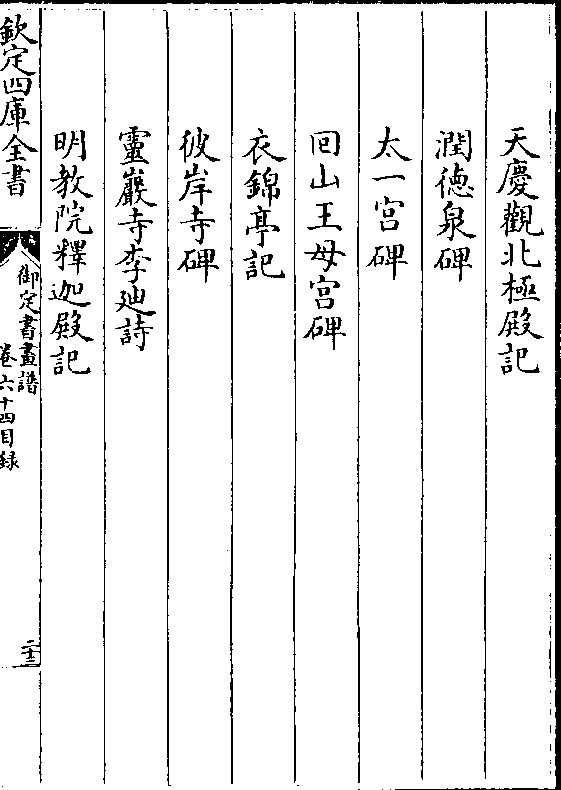 天慶觀北極殿記
潤德泉碑
太一宫碑
回山王母宫碑
衣錦亭記
彼岸寺碑
靈巖寺李廸詩
明教院釋迦殿記
欽定四庫全書
御定書畫譜
卷六十四目録
二十三